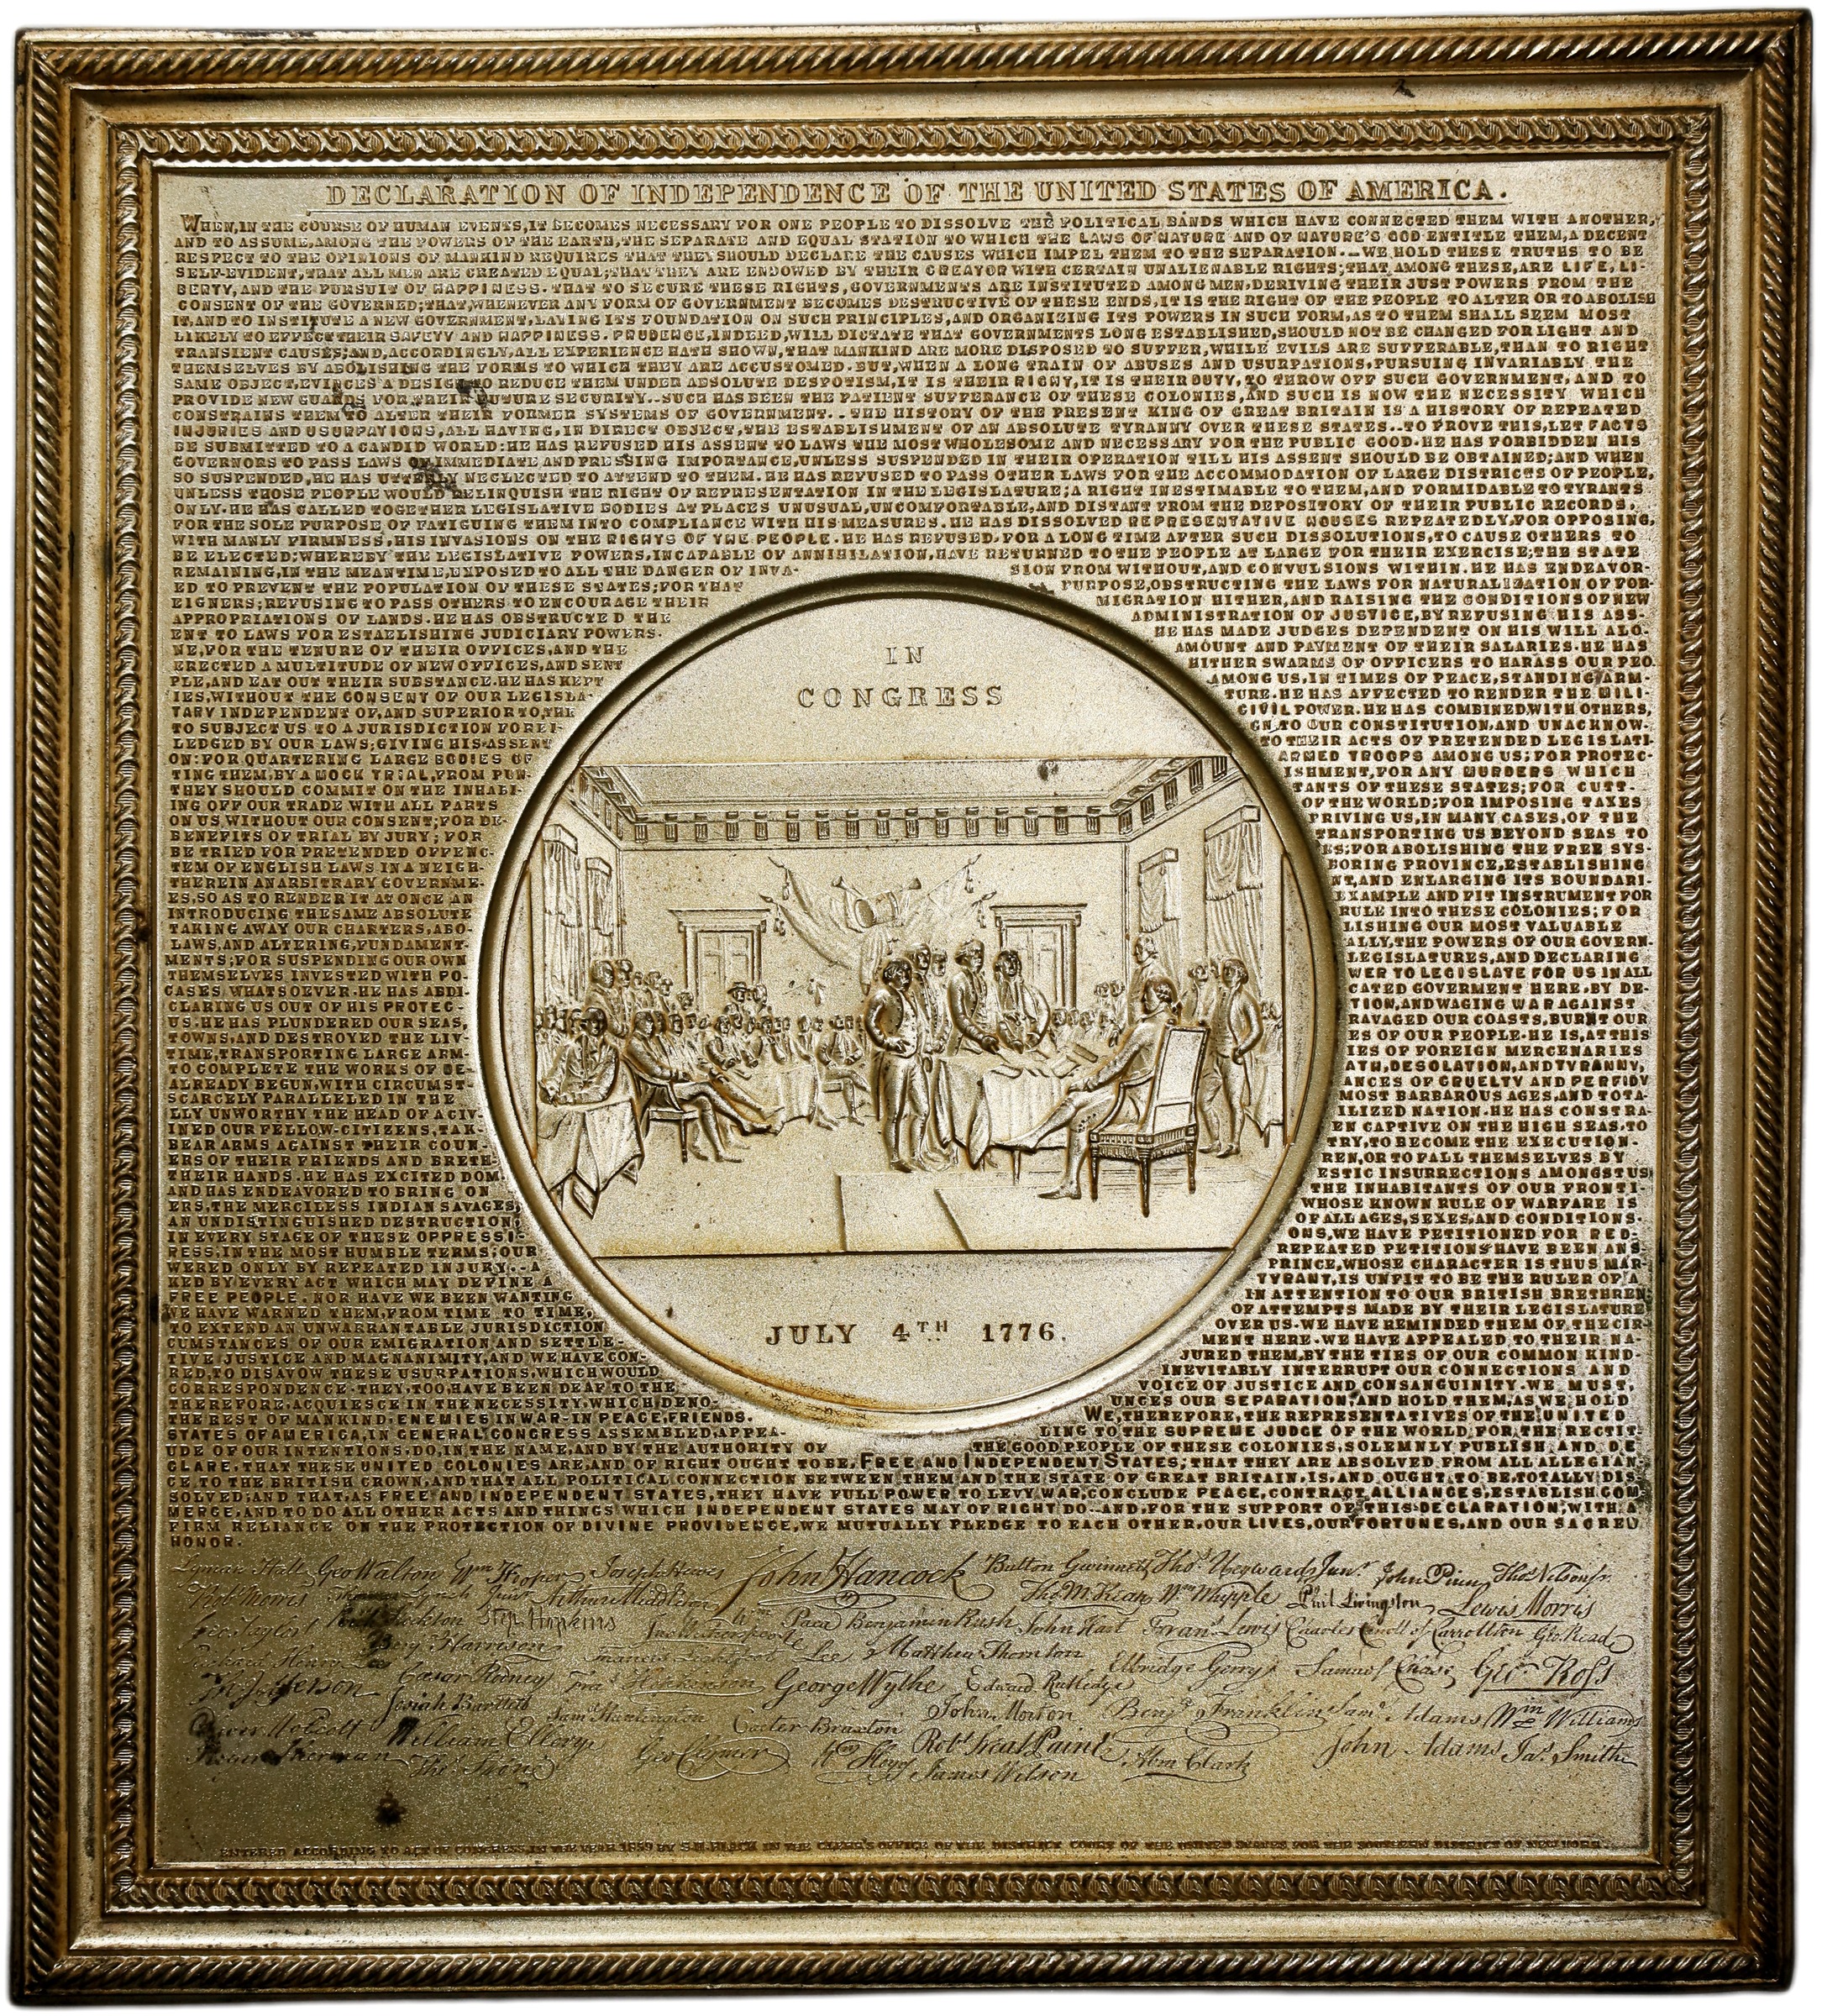 DECLARATION OF INDEPENDENCE OF THE UNITED STATES OF AMERICA.
WHEN, IN THE COURSE OF HUMAN EVENTS, IT BECOMES NECESSARY FOR ONE PEOPLE TO DISSOLVE THE POLITICAL BANDS WHICH HAVE CONNECTED THEM WITH ANOTHER,
AND TO ASSUME, AMONG THE POWERS OF THE EARTH, THE SEPARATE AND EQUAL STATION TO WHICH THE LAWS OF NATURE AND OF NATURE'S GOD ENTITLE THEM, A DECENT
RESPECT TO THE OPINIONS OF MANKIND REQUIRES THAT THEY SHOULD DECLARE THE CAUSES WHICH IMPEL THEM TO THE SEPARATION.—WE HOLD THESE TRUTHS TO BE
SELF-EVIDENT, THAT ALL MEN ARE CREATED EQUAL; THAT THEY ARE ENDOWED BY THEIR CREATOR WITH CERTAIN UNALIENABLE RIGHTS; THAT AMONG THESE, ARE LIFE, LI-
BERTY, AND THE PURSUIT OF HAPPINESS. THAT TO SECURE THESE RIGHTS, GOVERNMENTS ARE INSTITUTED AMONG MEN, DERIVING THEIR JUST POWERS FROM THE
CONSENT OF THE GOVERNED; THAT, WHENEVER ANY FORM OF GOVERNMENT BECOMES DESTRUCTIVE OF THESE ENDS, IT IS THE RIGHT OF THE PEOPLE TO ALTER OR TO ABOLISH
IT, AND TO INSTITUTE A NEW GOVERNMENT, LAYING ITS FOUNDATION ON SUCH PRINCIPLES, AND ORGANIZING ITS POWERS IN SUCH FORM, AS TO THEM SHALL SEEM MOST
LIKELY TO EFFECT THEIR SAFETY AND HAPPINESS. PRUDENCE, INDEED, WILL DICTATE THAT GOVERNMENTS LONG ESTABLISHED, SHOULD NOT BE CHANGED FOR LIGHT AND
TRANSIENT CAUSES; AND, ACCORDINGLY, ALL EXPERIENCE HATH SHOWN, THAT MANKIND ARE MORE DISPOSED TO SUFFER, WHILE EVILS ARE SUFFERABLE, THAN TO RIGHT
THEMSELVES BY ABOLISHING THE FORMS TO WHICH THEY ARE ACCUSTOMED. BUT, WHEN A LONG TRAIN OF ABUSES AND USURPATIONS, PURSUING INVARIABLY THE
SAME OBJECT, EVINCES A DESIGN TO REDUCE THEM UNDER ABSOLUTE DESPOTISM, IT IS THEIR RIGHT, IT IS THEIR DUTY, TO THROW OFF SUCH GOVERNMENT, AND TO
PROVIDE NEW GUARDS FOR THEIR FUTURE SECURITY.–SUCH HAS BEEN THE PATIENT SUFFERANCE OF THESE COLONIES, AND SUCH IS NOW THE NECESSITY WHICH
CONSTRAINS THEM TO ALTER THEIR FORMER SYSTEMS OF GOVERNMENT.–THE HISTORY OF THE PRESENT KING OF GREAT BRITAIN IS A HISTORY OF REPEATED
INJURIES AND USURPATIONS, ALL HAVING, IN DIRECT OBJECT, THE ESTABLISHMENT OF AN ABSOLUTE TYRANNY OVER THESE STATES.–TO PROVE THIS, LET FACTS
BE SUBMITTED TO A CANDID WORLD: HE HAS REFUSED HIS ASSENT TO LAWS THE MOST WHOLESOME AND NECESSARY FOR THE PUBLIC GOOD. HE HAS FORBIDDEN HIS
GOVERNORS TO PASS LAWS OF IMMEDIATE AND PRESSING IMPORTANCE, UNLESS SUSPENDED IN THEIR OPERATION TILL HIS ASSENT SHOULD BE OBTAINED; AND WHEN
SO SUSPENDED, HE HAS UTTERLY NEGLECTED TO ATTEND TO THEM. HE HAS REFUSED TO PASS OTHER LAWS FOR THE ACCOMMODATION OF LARGE DISTRICTS OF PEOPLE,
UNLESS THOSE PEOPLE WOULD RELINQUISH THE RIGHT OF REPRESENTATION IN THE LEGISLATURE; A RIGHT INESTIMABLE TO THEM, AND FORMIDABLE TO TYRANTS
ONLY. HE HAS CALLED TOGETHER LEGISLATIVE BODIES AT PLACES UNUSUAL, UNCOMFORTABLE, AND DISTANT FROM THE DEPOSITORY OF THEIR PUBLIC RECORDS,
FOR THE SOLE PURPOSE OF FATIGUING THEM INTO COMPLIANCE WITH HIS MEASURES. HE HAS DISSOLVED REPRESENTATIVE HOUSES REPEATEDLY, FOR OPPOSING,
WITH MANLY FIRMNESS, HIS INVASIONS ON THE RIGHTS OF THE PEOPLE. HE HAS REFUSED, FOR A LONG TIME AFTER SUCH DISSOLUTIONS, TO CAUSE OTHERS TO
BE ELECTED; WHEREBY THE LEGISLATIVE POWERS, INCAPABLE OF ANNIHILATION, HAVE RETURNED TO THE PEOPLE AT LARGE FOR THEIR EXERCISE; THE STATE
REMAINING, IN THE MEANTIME, EXPOSED TO ALL THE DANGER OF INVA- SION FROM WITHOUT, AND CONVULSIONS WITHIN. HE HAS ENDEAVOR-
ED TO PREVENT THE POPULATION OF THESE STATES; FOR THAT PURPOSE, OBSTRUCTING THE LAWS FOR NATURALIZATION OF FOR-
EIGNERS; REFUSING TO PASS OTHERS TO ENCOURAGE THEIR MIGRATION HITHER, AND RAISING THE CONDITIONS OF NEW
APPROPRIATIONS OF LANDS. HE HAS OBSTRUCTED THE ADMINISTRATION OF JUSTICE, BY REFUSING HIS ASS-
ENT TO LAWS FOR ESTABLISHING JUDICIARY POWERS. HE HAS MADE JUDGES DEPENDENT ON HIS WILL ALO-
NE, FOR THE TENURE OF THEIR OFFICES, AND THE AMOUNT AND PAYMENT OF THEIR SALARIES. HE HAS
ERECTED A MULTITUDE OF NEW OFFICES, AND SENT HITHER SWARMS OF OFFICERS TO HARASS OUR PEO
PLE, AND EAT OUT THEIR SUBSTANCE. HE HAS KEPT AMONG US, IN TIMES OF PEACE, STANDING ARM-
IES, WITHOUT THE CONSENT OF OUR LEGISLA- TURE. HE HAS AFFECTED TO RENDER THE MILI-
TARY INDEPENDENT OF, AND SUPERIOR TO, THE CIVIL POWER. HE HAS COMBINED, WITH OTHERS,
TO SUBJECT US TO A JURISDICTION FOREI- GN TO OUR CONSTITUTION, AND UNACKNOW-
LEDGED BY OUR LAWS; GIVING HIS ASSENT TO THEIR ACTS OF PRETENDED LEGISLATI-
ON: FOR QUARTERING LARGE BODIES OF ARMED TROOPS AMONG US; FOR PROTEC-
TING THEM, BY A MOCK TRIAL, FROM PUN- ISHMENT, FOR ANY MURDERS WHICH
THEY SHOULD COMMIT ON THE INHABI- TANTS OF THESE STATES; FOR CUTT-
ING OFF OUR TRADE WITH ALL PARTS OF THE WORLD; FOR IMPOSING TAXES
ON US, WITHOUT OUR CONSENT; FOR DE- PRIVING US, IN MANY CASES, OF THE
BENEFITS OF TRIAL BY JURY; FOR TRANSPORTING US BEYOND SEAS TO
BE TRIED FOR PRETENDED OFFENC- ES; FOR ABOLISHING THE FREE SYS-
TEM OF ENGLISH LAWS IN A NEIGH- BORING PROVINCE, ESTABLISHING
THEREIN AN ARBITRARY GOVERNME- NT, AND ENLARGING ITS BOUNDARI-
ES, SO AS TO RENDER IT AT ONCE AN EXAMPLE AND FIT INSTRUMENT FOR
INTRODUCING THE SAME ABSOLUTE RULE INTO THESE COLONIES; FOR
TAKING AWAY OUR CHARTERS, ABO- LISHING OUR MOST VALUABLE
LAWS, AND ALTERING, FUNDAMENT- ALLY, THE POWERS OF OUR GOVERN-
MENTS; FOR SUSPENDING OUR OWN LEGISLATURES, AND DECLARING
THEMSELVES INVESTED WITH PO- WER TO LEGISLATE FOR US IN ALL
CASES WHATSOEVER. HE HAS ABDI- CATED GOVERMENT HERE, BY DE-
CLARING US OUT OF HIS PROTEC- TION, AND WAGING WAR AGAINST
US. HE HAS PLUNDERED OUR SEAS, RAVAGED OUR COASTS, BURNT OUR
TOWNS, AND DESTROYED THE LIV- ES OF OUR PEOPLE. HE IS, AT THIS
TIME, TRANSPORTING LARGE ARM- IES OF FOREIGN MERCENARIES
TO COMPLETE THE WORKS OF DE- ATH, DESOLATION, AND TYRANNY,
ALREADY BEGUN, WITH CIRCUMST- ANCES OF CRUELTY AND PERFIDY
SCARCELY PARALLELED IN THE MOST BARBAROUS AGES, AND TOTA-
LLY UNWORTHY THE HEAD OF A CIV- ILIZED NATION. HE HAS CONSTRA-
INED OUR FELLOW-CITIZENS, TAK- EN CAPTIVE ON THE HIGH SEAS, TO
BEAR ARMS AGAINST THEIR COUN- TRY, TO BECOME THE EXECUTION-
ERS OF THEIR FRIENDS AND BRETH- REN, OR TO FALL THEMSELVES BY
THEIR HANDS. HE HAS EXCITED DOM- ESTIC INSURRECTIONS AMONGST US,
AND HAS ENDEAVORED TO BRING ON THE INHABITANTS OF OUR FRONTI-
ERS, THE MERCILESS INDIAN SAVAGES, WHOSE KNOWN RULE OF WARFARE IS
AN UNDISTINGUISHED DESTRUCTION, OF ALL AGES, SEXES, AND CONDITIONS.
IN EVERY STAGE OF THESE OPPRESSI- ONS, WE HAVE PETITIONED FOR RED-
RESS, IN THE MOST HUMBLE TERMS; OUR REPEATED PETITIONS HAVE BEEN ANS
WERED ONLY BY REPEATED INJURY.–A PRINCE, WHOSE CHARACTER IS THUS MAR-
KED BY EVERY ACT WHICH MAY DEFINE A TYRANT, IS UNFIT TO BE THE RULER OF A
FREE PEOPLE. NOR HAVE WE BEEN WANTING IN ATTENTION TO OUR BRITISH BRETHREN.
WE HAVE WARNED THEM, FROM TIME TO TIME, OF ATTEMPTS MADE BY THEIR LEGISLATURE
TO EXTEND AN UNWARRANTABLE JURISDICTION OVER US. WE HAVE REMINDED THEM OF THE CIR-
CUMSTANCES OF OUR EMIGRATION AND SETTLE- MENT HERE. WE HAVE APPEALED TO THEIR NA-
TIVE JUSTICE AND MAGNANIMITY, AND WE HAVE CON- JURED THEM, BY THE TIES OF OUR COMMON KIND-
RED, TO DISAVOW THESE USURPATIONS, WHICH WOULD INEVITABLY INTERRUPT OUR CONNECTIONS AND
CORRESPONDENCE. THEY, TOO, HAVE BEEN DEAF TO THE VOICE OF JUSTICE AND CONSANGUINITY. WE MUST,
THEREFORE, ACQUIESCE IN THE NECESSITY, WHICH DENO- UNCES OUR SEPARATION, AND HOLD THEM, AS WE HOLD
THE REST OF MANKIND, ENEMIES IN WAR–IN PEACE, FRIENDS. WE, THEREFORE, THE REPRESENTATIVES OF THE UNITED
STATES OF AMERICA, IN GENERAL CONGRESS ASSEMBLED, APPEA- LING TO THE SUPREME JUDGE OF THE WORLD, FOR THE RECTIT-
UDE OF OUR INTENTIONS, DO, IN THE NAME, AND BY THE AUTHORITY OF THE GOOD PEOPLE OF THESE COLONIES, SOLEMNLY PUBLISH AND DE
CLARE, THAT THESE UNITED COLONIES ARE, AND OF RIGHT OUGHT TO BE, FREE AND INDEPENDENT STATES; THAT THEY ARE ABSOLVED FROM ALL ALLEGIAN-
CE TO THE BRITISH CROWN, AND THAT ALL POLITICAL CONNECTION BETWEEN THEM AND THE STATE OF GREAT BRITAIN, IS, AND OUGHT TO BE, TOTALLY DIS
SOLVED; AND THAT, AS FREE AND INDEPENDENT STATES, THEY HAVE FULL POWER TO LEVY WAR, CONCLUDE PEACE, CONTRACT ALLIANCES, ESTABLISH COM
MERCE, AND TO DO ALL OTHER ACTS AND THINGS WHICH INDEPENDENT STATES MAY OF RIGHT DO.–AND, FOR THE SUPPORT OF THIS DECLARATION, WITH A
FIRM RELIANCE ON THE PROTECTION OF DIVINE PROVIDENCE, WE MUTUALLY PLEDGE TO EACH OTHER, OUR LIVES, OUR FORTUNES, AND OUR SACRED
HONOR.
IN
CONGRESS
JULY 4TH 1776.
Lyman Hall Geo Walton Wm Hooper Joseph Hewes John Hancock Button Gwinnett Thos Heyward Junr John Penn Thos Nelson jr
Robt Morris Thomas Lynch Junr Arthur Middleton Tho M:Kean Wm Whipple Phil Livingston Lewis Morris
Geo Taylor Richd Stockton Step Hopkins Wm Paca Benjamin Rush John Hart Frans Lewis Charles Carroll of Carrollton Geo Read
Richard Henry Lee Benj Harrison Francis Lightfoot Lee Matthew Thornton Elbridge Gerry Samuel Chase Geo Ross
Th Jefferson Caesar Rodney Fras Hopkinson George Wythe Edward Rutledge
Oliver Wolcott Josiah Bartlett Saml Huntington Carter Braxton John Morton Benj Franklin Saml Adams Wm Williams
Roger Sherman William Ellery Thos Stone Geo Clymer Wm Floyd Robt Treat Paine Abra Clark John Adams Jas Smith
James Wilson
ENTERED ACCORDING TO ACT OF CONGRESS, IN THE YEAR 1859 BY S.H. BLACK IN THE CLERK'S OFFICE OF THE DISTRICT COURT OF THE UNITED STATES FOR THE SOUTHERN DISTRICT OF NEW YORK.